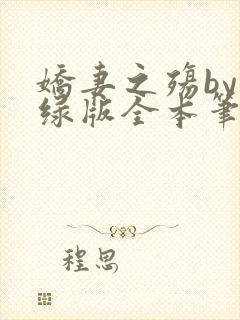 娇妻之殇by
绿版全本笔
程思